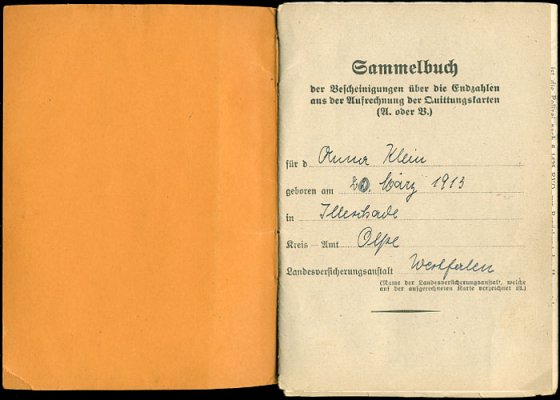 Sammelbuch
der Bescheinigungen über die Endzahlen
aus der Aufrechnung der Quittungskarten
(A. oder B.)
für d Anna Klein
geboren am 20. März 1913
in Illeschade
Kreis - Amt Olpe
Landesversicherungsanstalt Westfalen
(Name der Landesversicherungsanstalt, welche
auf der aufgerechneten Karte verzeichnet ist.)